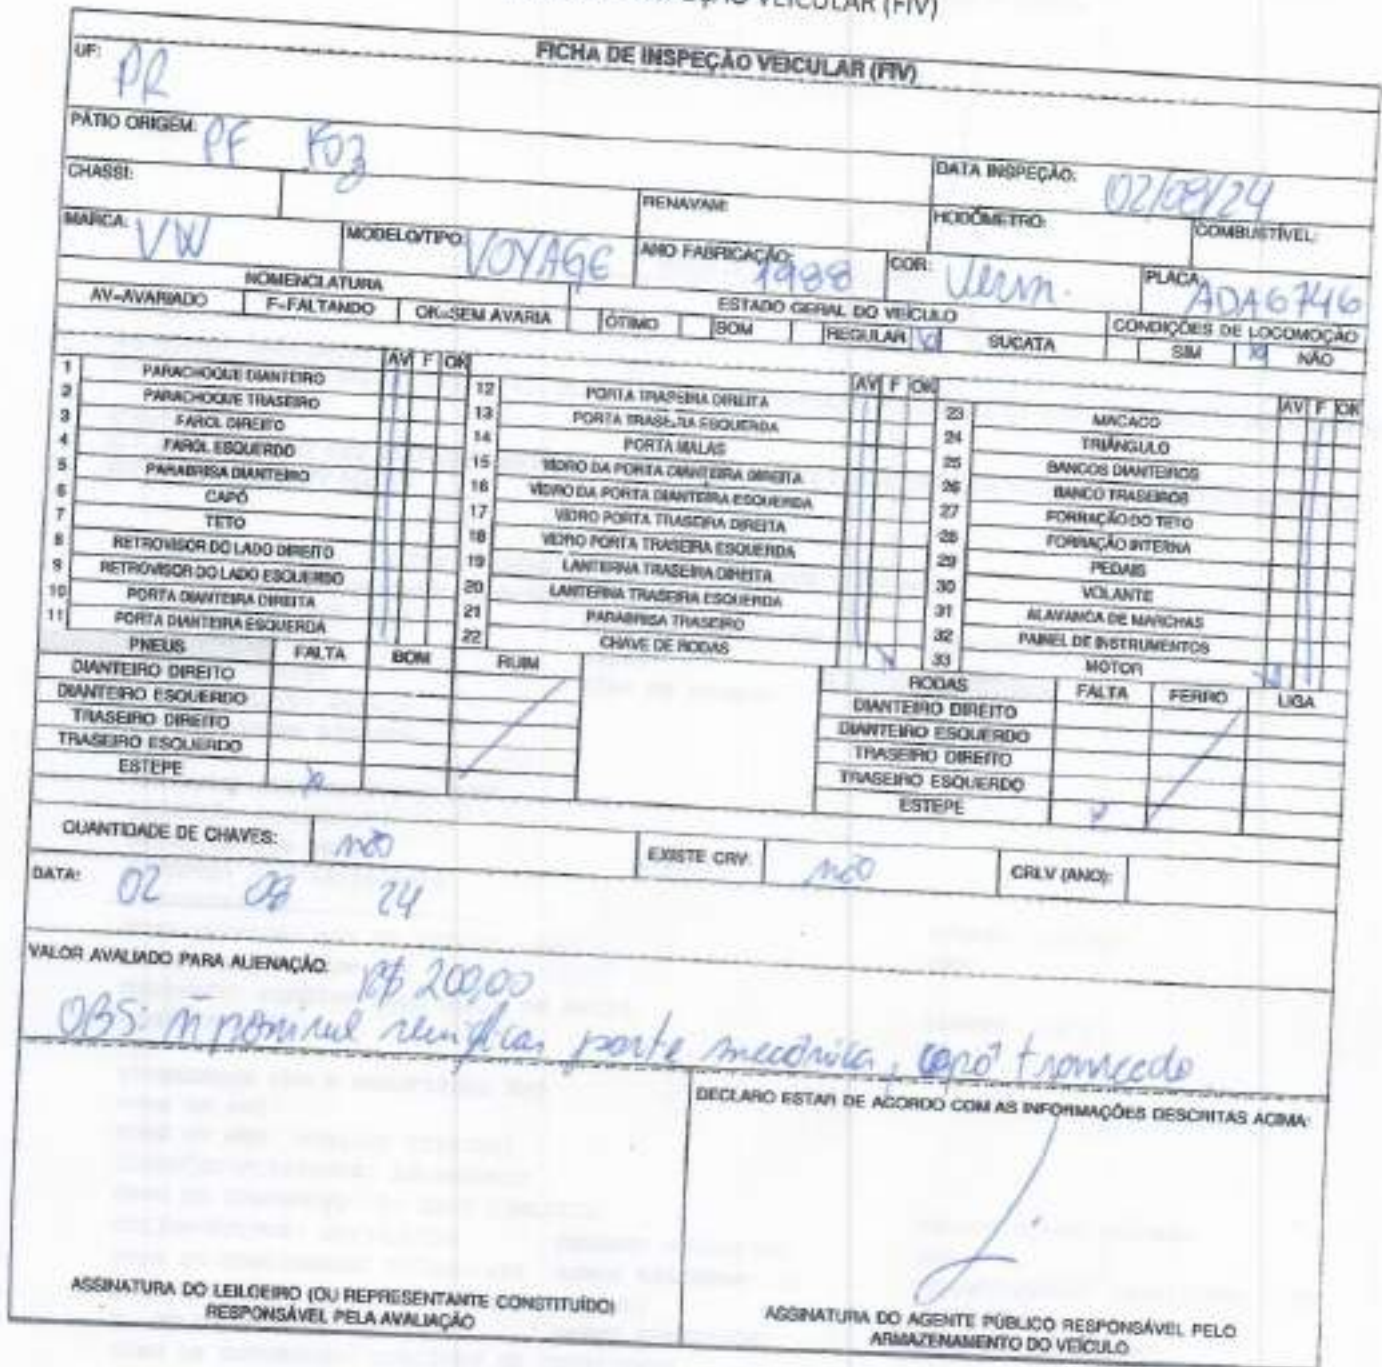 VEICULAR (FIV)
FICHA DE INSPEÇÃO VEICULAR (FIV)
UF: PR
PÁTIO ORIGEM: PF Foz
DATA INSPEÇÃO: 02/08/24
CHASSI:
RENAVAM:
HODÔMETRO:
COMBUSTÍVEL:
MARCA: VW
MODELO/TIPO: VOYAGE
ANO FABRICAÇÃO: 1988
COR: Verm.
PLACA: ADA6746
NOMENCLATURA
ESTADO GERAL DO VEÍCULO
CONDIÇÕES DE LOCOMOÇÃO
AV=AVARIADO F=FALTANDO OK=SEM AVARIA
ÓTIMO BOM REGULAR X SUCATA
SIM X NÃO
AV F OK
1 PARACHOQUE DIANTEIRO
2 PARACHOQUE TRASEIRO
3 FAROL DIREITO
4 FAROL ESQUERDO
5 PARABRISA DIANTEIRO
6 CAPÔ
7 TETO
8 RETROVISOR DO LADO DIREITO
9 RETROVISOR DO LADO ESQUERDO
10 PORTA DIANTEIRA DIREITA
11 PORTA DIANTEIRA ESQUERDA
AV F OK
12 PORTA TRASEIRA DIREITA
13 PORTA TRASEIRA ESQUERDA
14 PORTA MALAS
15 VIDRO DA PORTA DIANTEIRA DIREITA
16 VIDRO DA PORTA DIANTEIRA ESQUERDA
17 VIDRO PORTA TRASEIRA DIREITA
18 VIDRO PORTA TRASEIRA ESQUERDA
19 LANTERNA TRASEIRA DIREITA
20 LANTERNA TRASEIRA ESQUERDA
21 PARABRISA TRASEIRO
22 CHAVE DE RODAS X
AV F OK
23 MACACO
24 TRIÂNGULO
25 BANCOS DIANTEIROS
26 BANCO TRASEIROS
27 FORRAÇÃO DO TETO
28 FORRAÇÃO INTERNA
29 PEDAIS
30 VOLANTE
31 ALAVANCA DE MARCHAS
32 PAINEL DE INSTRUMENTOS
33 MOTOR X
PNEUS FALTA BOM RUIM
DIANTEIRO DIREITO
DIANTEIRO ESQUERDO
TRASEIRO DIREITO
TRASEIRO ESQUERDO
ESTEPE X
RODAS FALTA FERRO LIGA
DIANTEIRO DIREITO
DIANTEIRO ESQUERDO
TRASEIRO DIREITO
TRASEIRO ESQUERDO
ESTEPE X
QUANTIDADE DE CHAVES: não
EXISTE CRV: não
CRLV (ANO):
DATA: 02 08 24
VALOR AVALIADO PARA ALIENAÇÃO: R$ 200,00
OBS: parte mecânica, capô
DECLARO ESTAR DE ACORDO COM AS INFORMAÇÕES DESCRITAS ACIMA:
ASSINATURA DO LEILOEIRO (OU REPRESENTANTE CONSTITUÍDO)
RESPONSÁVEL PELA AVALIAÇÃO
ASSINATURA DO AGENTE PÚBLICO RESPONSÁVEL PELO
ARMAZENAMENTO DO VEÍCULO